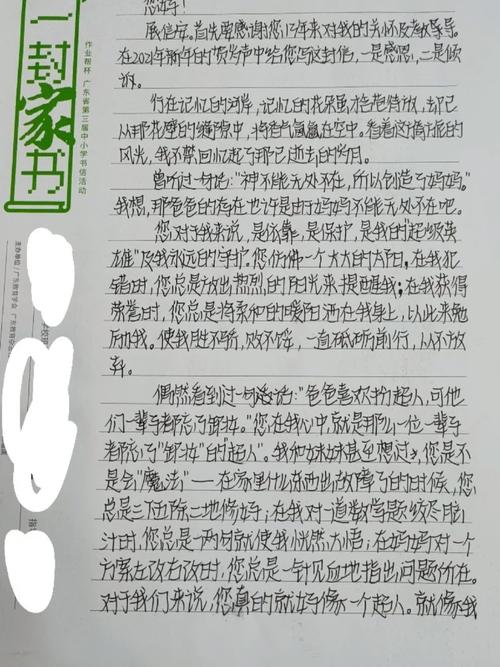 您好！
展信安。首先要感谢您这年来对我的关怀及教导。
在2021年新年的贺岁声中给您写这封信，一是感恩，二是倾
诉。
行在记忆的河岸，记忆的花朵虽未艳艳绽放，却已
从那花瓣的缝隙中，将香气氤氲在空中。看着这摇曳的
风光，我不禁回忆起了那已逝去的岁月。
曾听过一句话："神不能无处不在，所以创造了妈妈。"
我想，那爸爸的存在也许是由于妈妈不能无处不在吧。
您对于我来说，是依靠，是保护，是我的"超级英
雄"及我永远的守护。您仿佛一个大大的太阳，在我犯
错时，您总是放出热烈的阳光来提醒我；在我获得
荣誉时，您总是将柔和的暖阳洒在我身上，以此来勉
励我。使我胜不骄，败不馁，一直砥砺前行，从不放
弃。
偶然看到过一句话："爸爸喜欢扮超人，可他
们一辈子都忘了卸妆。"您在我心中就是那么一位一辈子
都忘了"卸妆"的"超人"。我和妹妹甚至想过，您是不
是会"魔法"——在家里什么东西出故障了的时候，您
总是三下五除二地修好；在我对一道数学题绞尽脑
汁时，您总是一两句就使我恍然大悟；在妈妈对一个
方案左改右改时，您总是一针见血地指出问题所在。
对于我们来说，您真的就好像一个超人。就像我
一封家书
作业帮杯 广东省第三届中小学书信活动
主办单位：广东教育学会 广东教育杂志